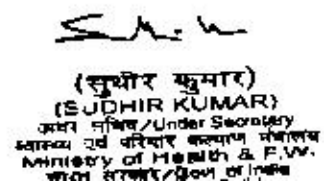 (सुधीर कुमार)
(SUDHIR KUMAR)
अवर सचिव/Under Secretary
स्वास्थ्य एवं परिवार कल्याण मंत्रालय
Ministry of Health & F.W.
भारत सरकार/Govt of India